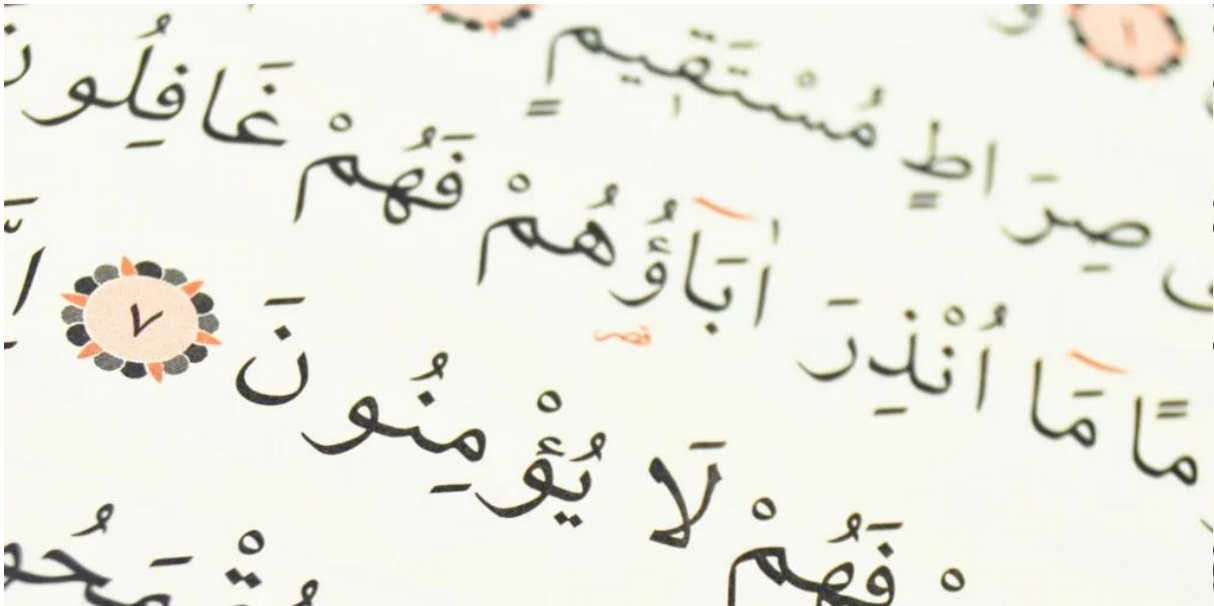 ١
صِرَاطٍ مُسْتَقِيمٍ
مًا مَا اُنْذِرَ اٰبَاؤُهُمْ فَهُمْ غَافِلُونَ
قصر
فَهُمْ لَا يُؤْمِنُونَ ٧